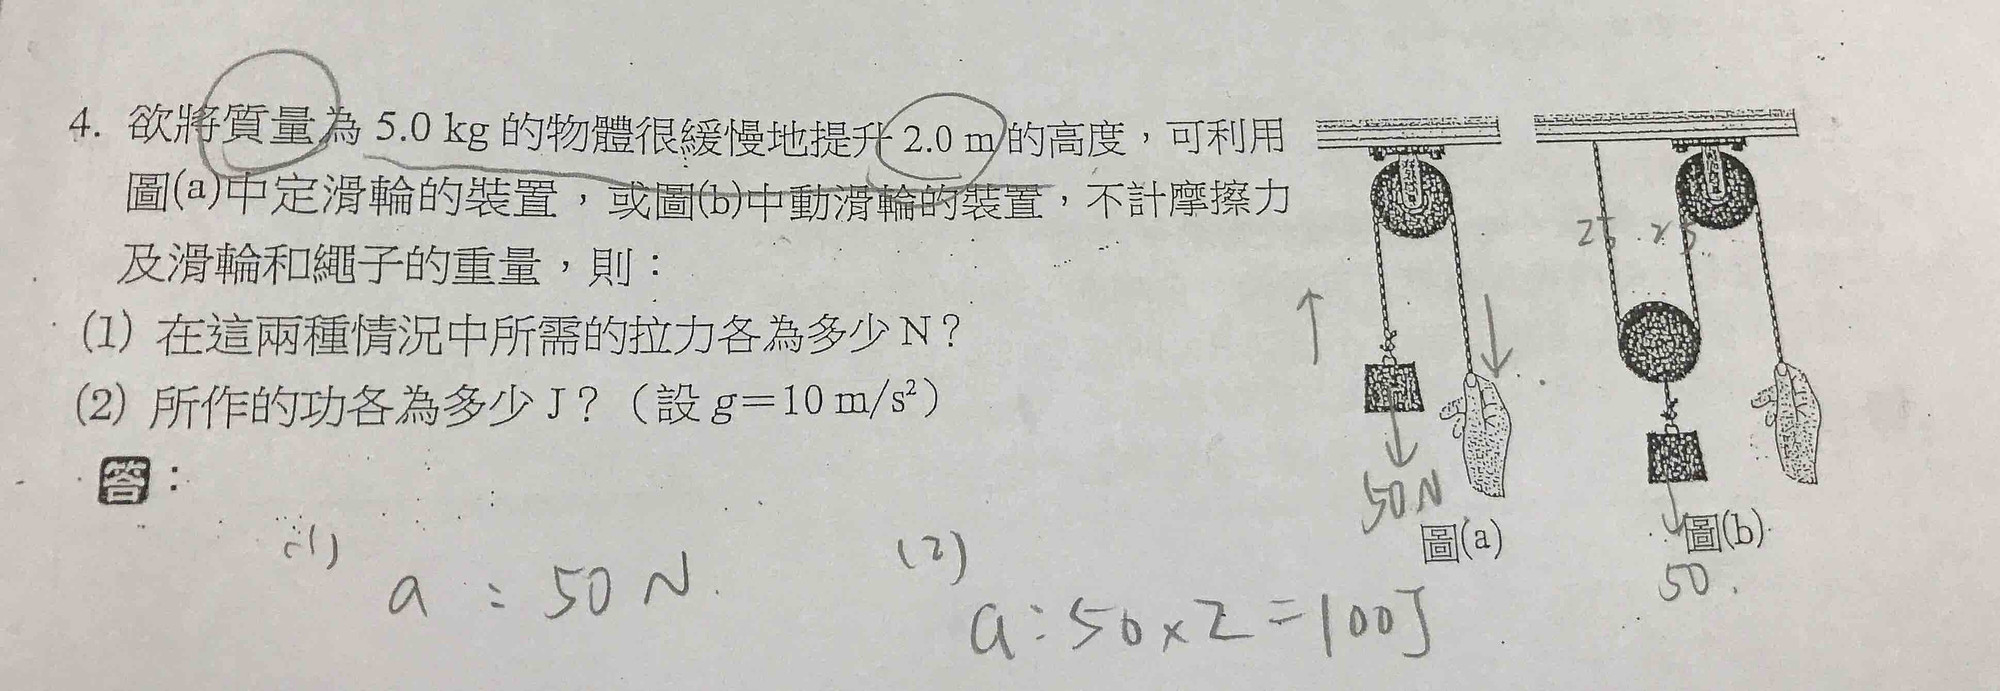 4. 欲將質量為 5.0 kg 的物體很緩慢地提升 2.0 m 的高度，可利用
圖(a)中定滑輪的裝置，或圖(b)中動滑輪的裝置，不計摩擦力
及滑輪和繩子的重量，則：
(1) 在這兩種情況中所需的拉力各為多少 N？
(2) 所作的功各為多少 J？（設 g＝10 m/s²）
答：
(1)
a : 50 N.
(2)
a : 50 × 2 = 100 J
50 N
圖(a)
25 25
圖(b)
50.